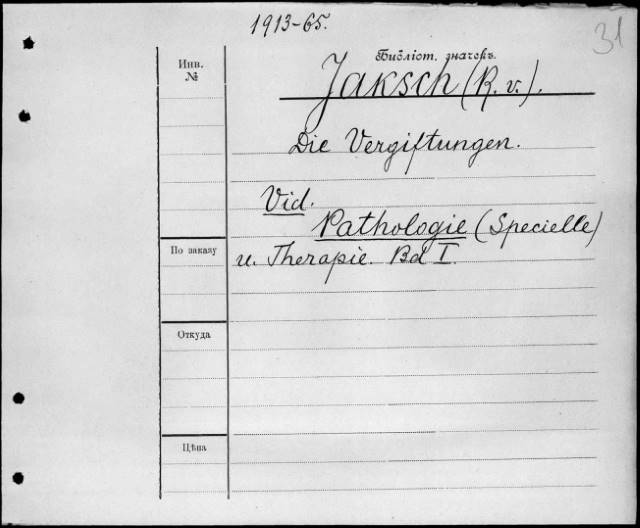 1913-65.
31
Библіот. значекъ.
Инв.
№
Jaksch (R. v.).
Die Vergiftungen.
Vid.
Pathologie (Specielle)
По заказу
u. Therapie. Bd I.
Откуда
Цѣна